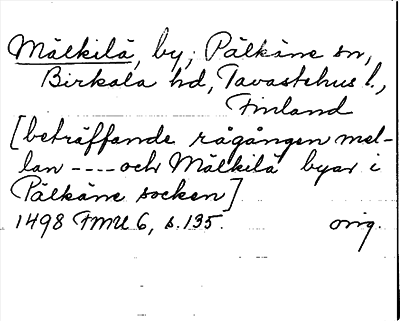 Mälkilä, by, Pälkäne sn,
Birkala hd, Tavastehus l.,
Finland
[beträffande rågången mel-
lan ---- och Mälkilä byar i
Pälkäne socken]
1498 FMU 6, s. 135. orig.